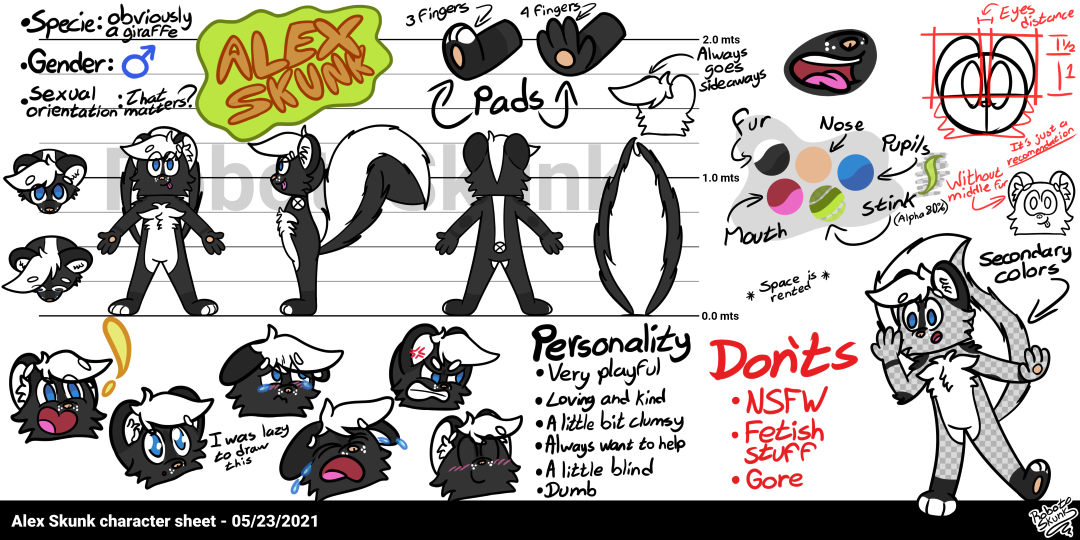 •Specie: obviously
a giraffe
•Gender: ♂
•Sexual
orientation: That
matters?
ALEX
SKUNK
3 Fingers
4 fingers
Pads
2.0 mts
Always
goes
sideaways
Eyes
distance
1½
1
It's just a
recomendation
Robot Skunk
1.0 mts
Fur
Nose
Pupils
Mouth
Stink
(Alpha 80%)
Without
middle fur
* Space is *
rented
Secondary
colors
0.0 mts
I was lazy
to draw
this
Personality
•Very playful
•Loving and kind
•A little bit clumsy
•Always want to help
•A little blind
•Dumb
Don'ts
•NSFW
•Fetish
stuff
•Gore
Alex Skunk character sheet - 05/23/2021
Roboto
Skunk